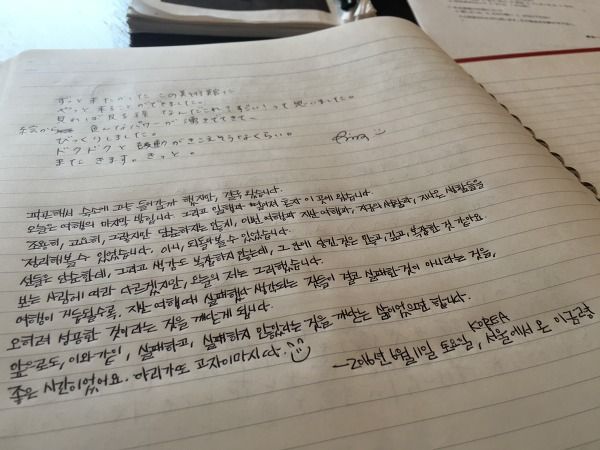 ずっと来たかった この美術館に
やっと来ることができました。
見れば見る程 なんだこれ！すごい！って思いました。
絵から 色んなパワーが 湧きでてきて、
びっくりしました。
ドクドクと 鼓動が きこえそうなくらい。
また きます。きっと。
피곤해서 숙소에 그냥 들어갈까 했지만, 결국 왔습니다.
오늘은 여행의 마지막 밤입니다. 그리고 일행과 떨어져 혼자 이 곳에 왔습니다.
조용히, 고요히, 그렇지만 단순하지는 않게, 이번 여행과 지난 여행과, 지금의 사람과, 지나온 사람들을
정리해볼 수 있었습니다. 아니, 되돌아볼 수 있었습니다.
선들은 단순한데, 그리고 색감도 복잡하지 않는데, 그 안에 담긴 것은 깊고, 복잡한 것 같아요.
보는 사람에 따라 다르겠지만, 오늘의 저는 그러했습니다.
여행이 거듭될수록, 지난 여행 때 실패했다 생각되는 것들이 결코 실패한 것이 아니라는 것을,
오히려 성공한 것이라는 것을 깨닫게 됩니다.
앞으로도, 이와 같이, 실패하고, 실패하지 않았다는 것을 깨닫는 삶이었으면 합니다.
좋은 시간이었어요. 아리가또 고자이마시따.
KOREA
-2016년 6월 11일 토요일, 서울에서 온